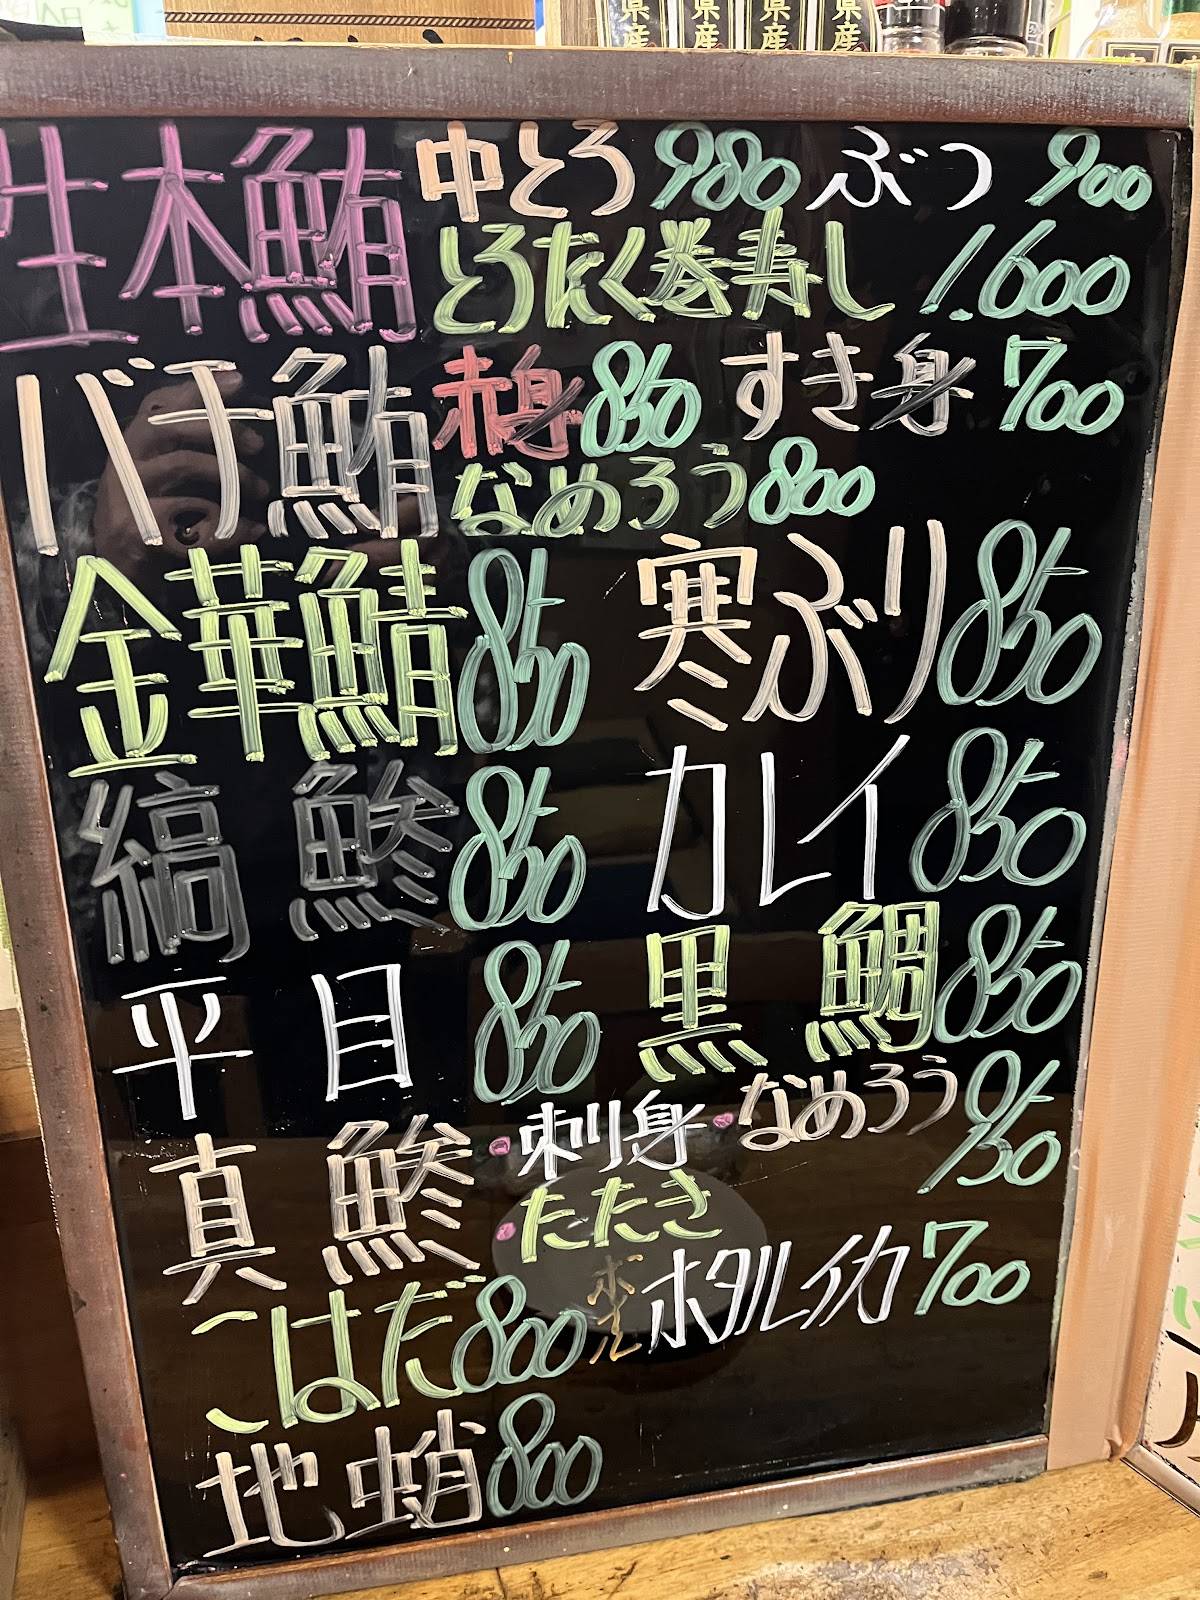 県産 県産 県産 県産
生本鮪 中とろ 980 ぶつ 900
とろたく巻寿し 1.600
バチ鮪 赤身 850 すき身 700
なめろう 800
金華鯖 850 寒ぶり 850
縞鯵 850 カレイ 850
平目 850 黒鯛 850
真鯵 ・刺身 ・なめろう 各950
・たたき
こはだ 800 ボイル ホタルイカ 700
地蛸 800